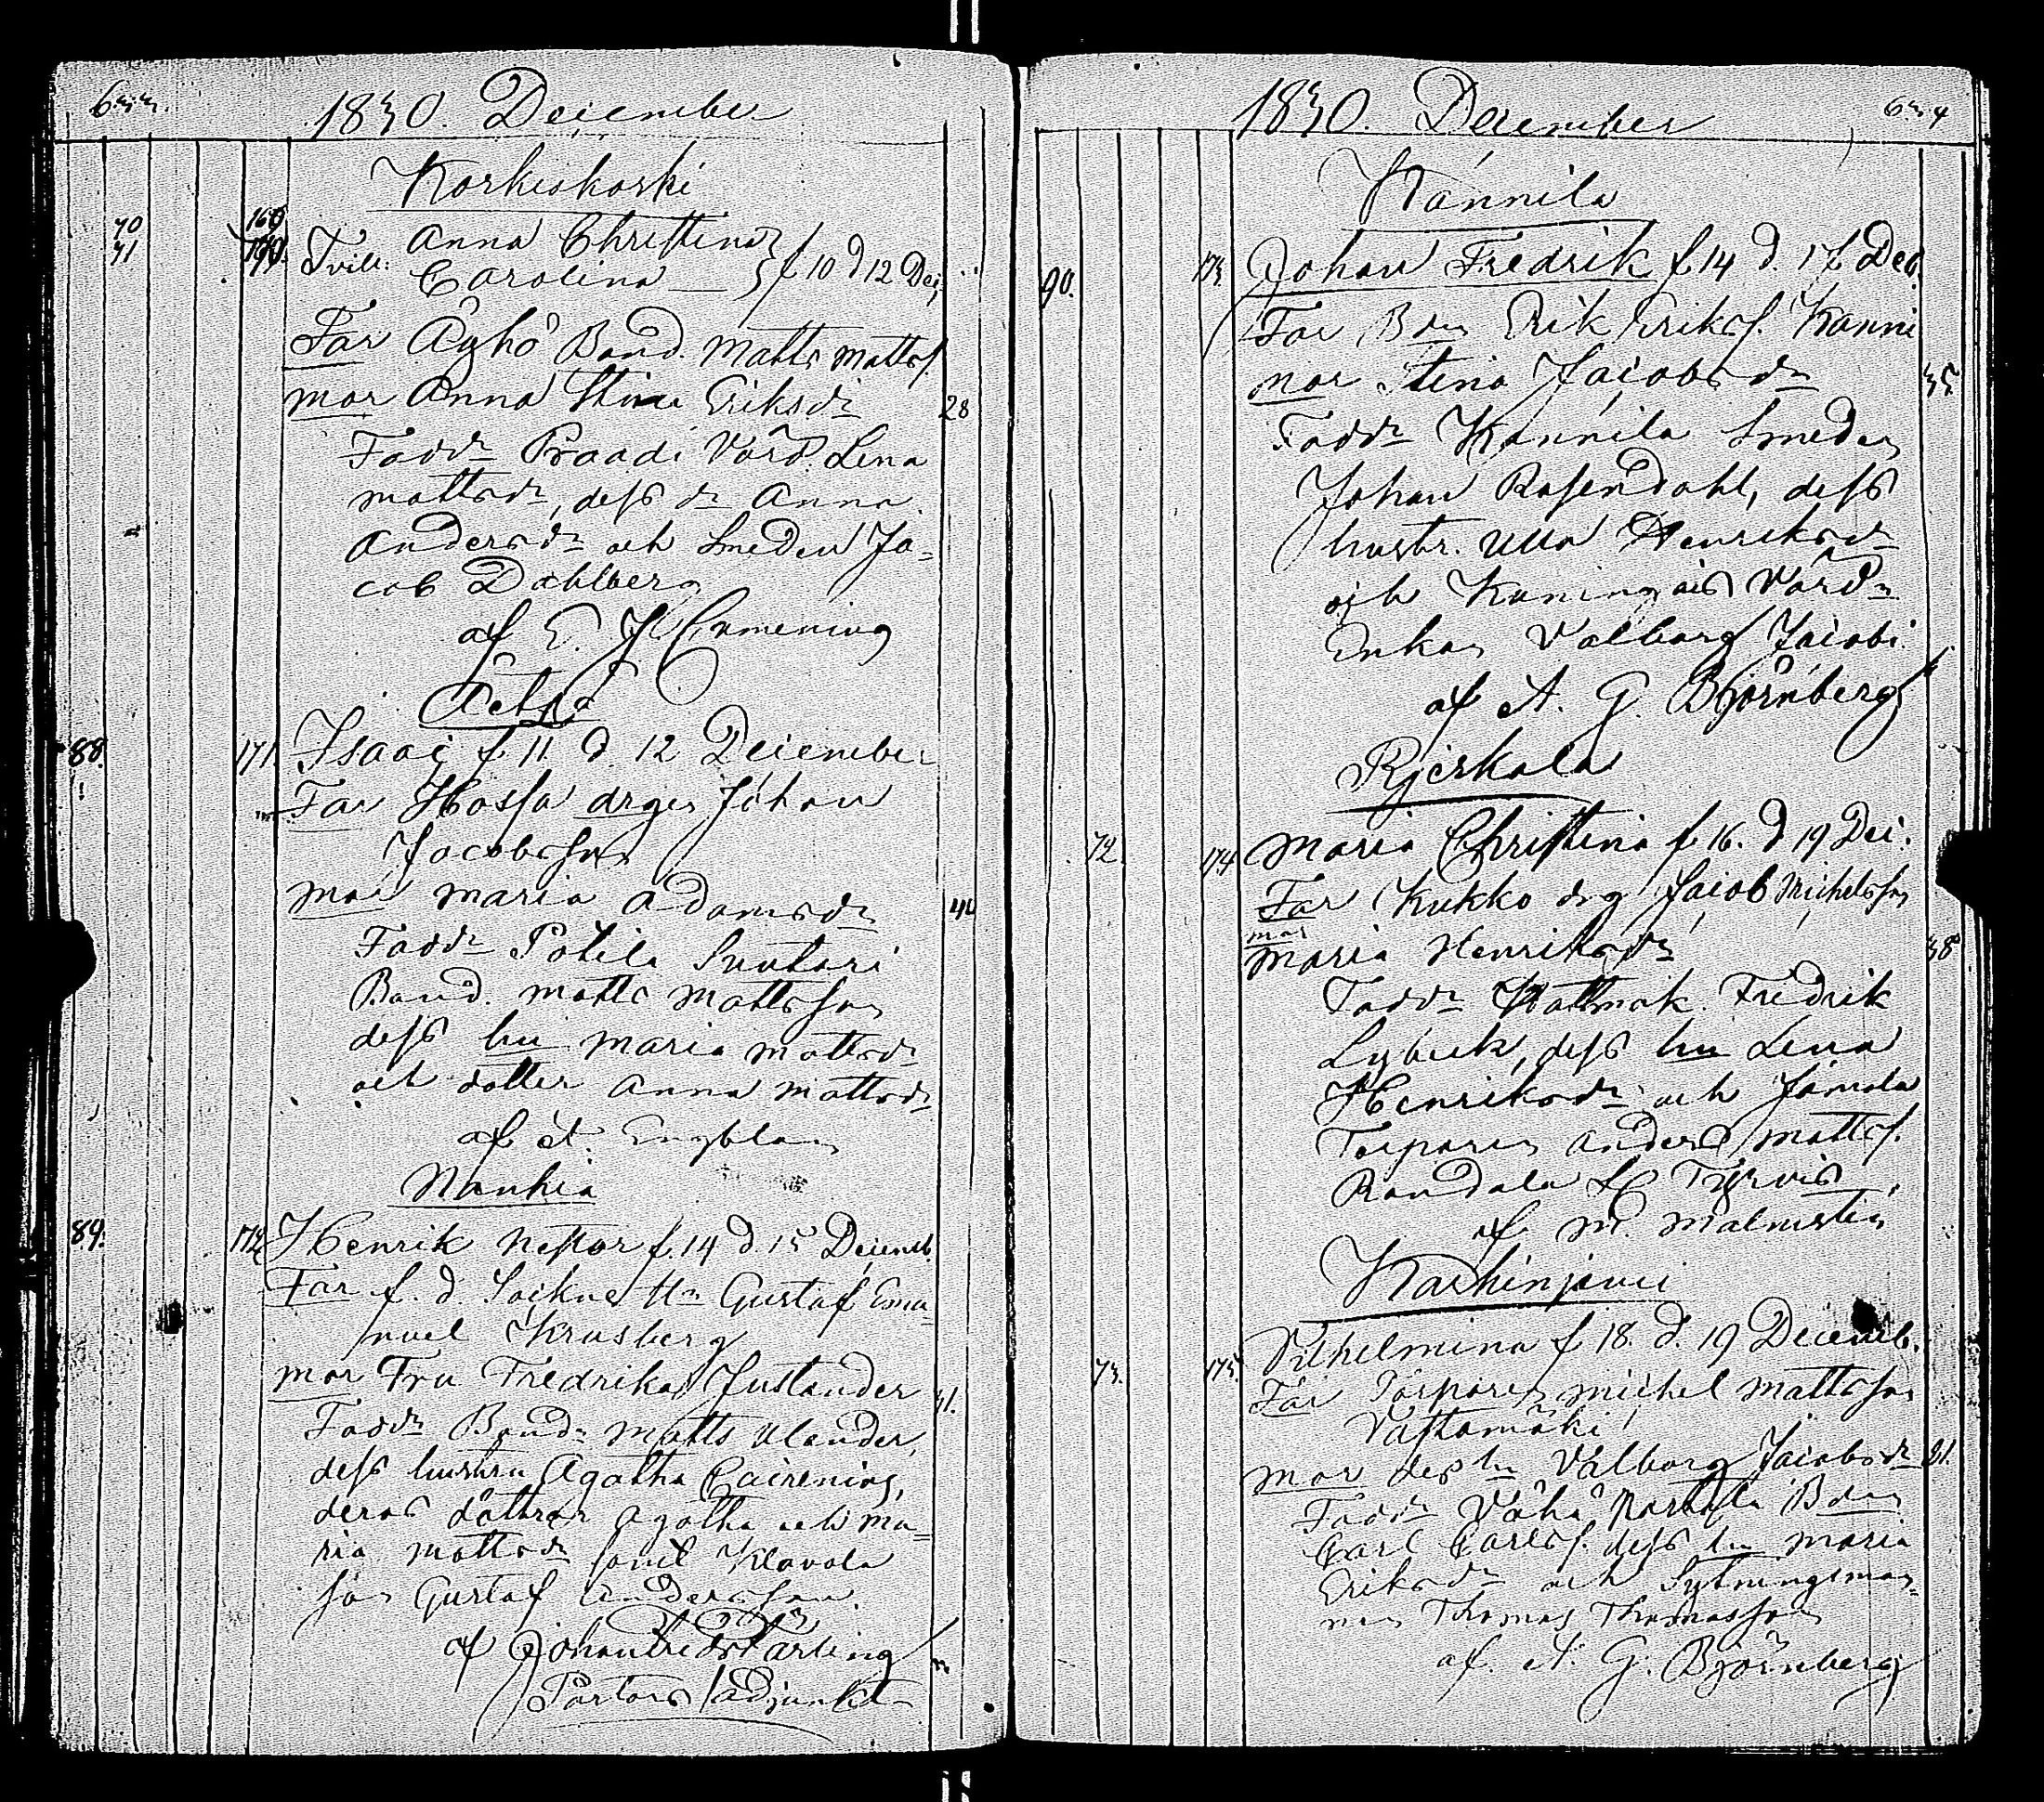 1830. December
Korkiakoski
70 169
71 170. Tvill: Anna Christina
Carolina f 10 d 12 Dec
Far Äyhö Bond. Matts Mattss.
Mor Anna Stina Eriksdr 28
Faddr Praadi Värd. Lena
Mattsdr, dess dr Anna
Andersdr och Smeden Ja=
cob Dahlberg
af E. J.
88. 171. Isaac f 11. d. 12 December
Far Hossa drgen Johan
Jacobsson
Mor Maria Adamsdr
Faddr Potila Suutari
Bond. Matts Mattsson
dess hu Maria Mattsdr
och dotter Anna Mattsdr
Nanhia
89. 172 Henrik Nestor f. 14 d. 15 Decemb.
Far f. d. Gustaf Ema=
nuel Krusberg
Mor Fru Fredrika Justander
Faddr Bond. Matts Ulander,
dess hustru Agatha
deras döttrar Agatha och Ma=
ria Mattsdr samt Klavola
son Gustaf Andersson
af Johan Fredr Färling
Pastors Adjunkt
1830. December
634
Kännilä
90. 173. Johan Fredrik f 14 d. 17 Dec.
Far Bdn Erik Erikss. Känni
Mor Stina Jacobsdr 35
Faddr Kännilä Smeden
Johan Rosendahl, dess
hustr. Ulla Henriksdr
och Kuningais Värdn
Enkan Valborg Jacobs.
af A. G. Björnberg
72. 174 Maria Christina f 16. d 19 Dec.
Far Kukko drg Jacob Michelsson
mor
Maria Henriksdr 38
Faddr Hattmak. Fredrik
Lybeck, dess hu Lena
Henriksdr och Jamala
Torparen Anders Mattss.
af M. Malmsten
Karhinjarvi
73. 175. Vilhelmina f 18. d. 19 Decemb.
Far Torparen Michel Mattsson
Vastamäki
Mor dess hu Valborg Jacobsdr
Faddr Vähä Bdn
Carl Carlss. dess hu Maria
Eriksdr och Sytningsman=
nen Thomas Thomasson
af. A. G. Björnberg